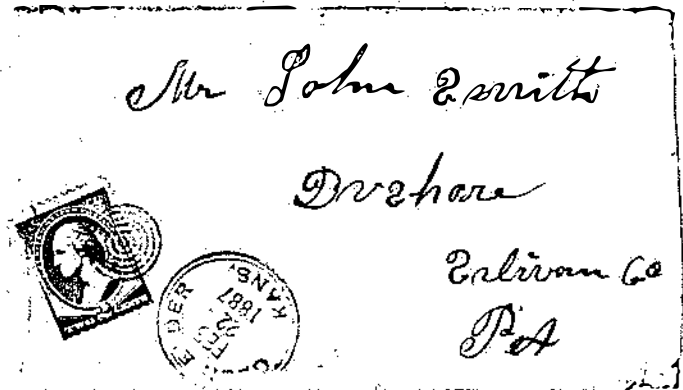 Mr John Smith
Dushore
Sulivan Co
PA
DER
KANS.
FEB
22
1887